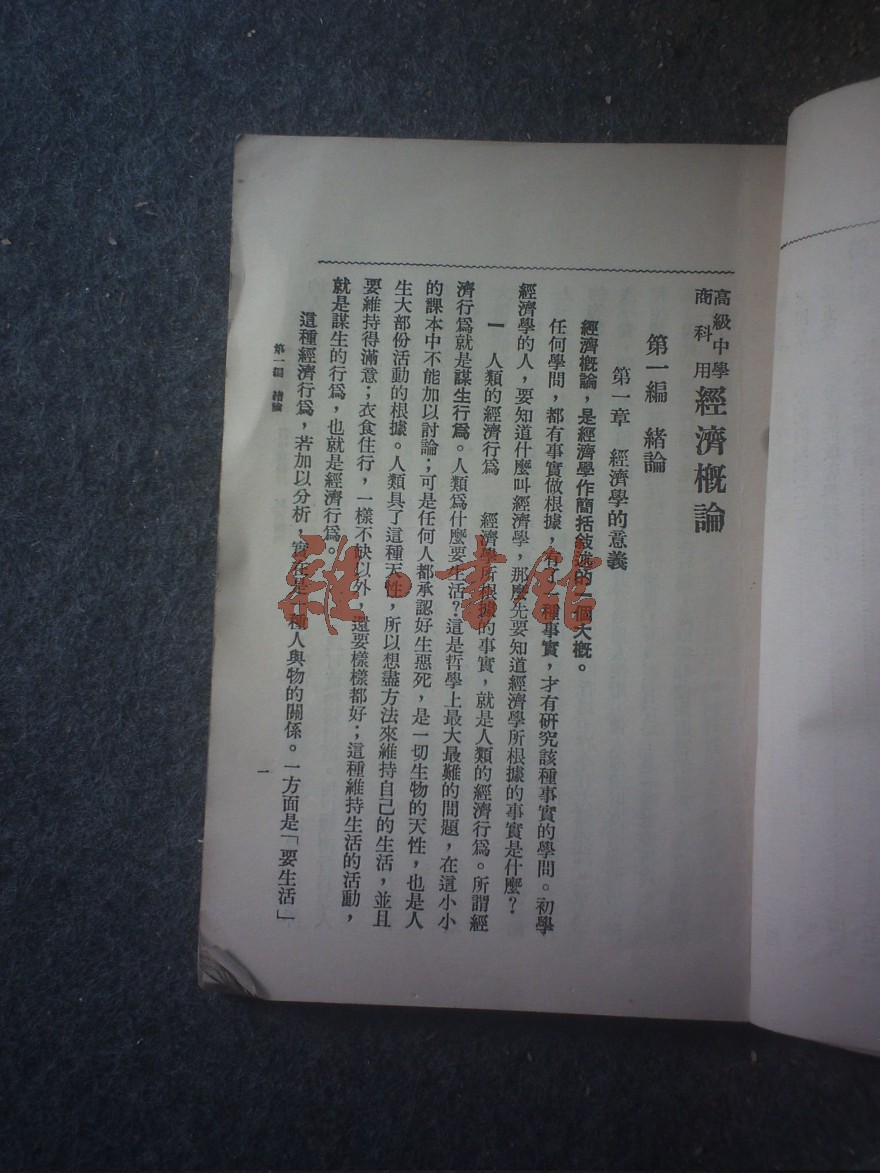 高級中學
商科用
經濟概論
第一編 緒論
第一章 經濟學的意義
經濟概論，是經濟學作簡括敍述的一個大概。
任何學問，都有事實做根據，有了一種事實，才有研究該種事實的學問。初學
經濟學的人，要知道什麼叫經濟學，那麼先要知道經濟學所根據的事實是什麼？
一 人類的經濟行爲 經濟學所根據的事實，就是人類的經濟行爲。所謂經
濟行爲就是謀生行爲。人類爲什麼要生活？這是哲學上最大最難的問題，在這小小
的課本中不能加以討論；可是任何人都承認好生惡死，是一切生物的天性，也是人
生大部份活動的根據。人類具了這種天性，所以想盡方法來維持自己的生活，並且
要維持得滿意；衣食住行，一樣不缺以外，還要樣樣都好；這種維持生活的活動，
就是謀生的行爲，也就是經濟行爲。
這種經濟行爲，若加以分析，實在是一種人與物的關係。一方面是「要生活」
第一編 緒論
一
雜·書館